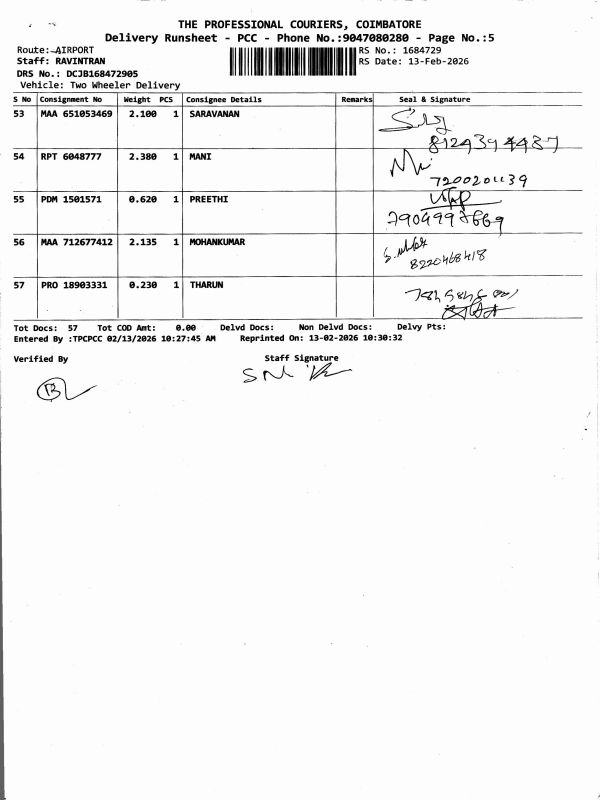 THE PROFESSIONAL COURIERS, COIMBATORE
Delivery Runsheet - PCC - Phone No.:9047080280 - Page No.:5
Route: AIRPORT
RS No.: 1684729
Staff: RAVINTRAN
RS Date: 13-Feb-2026
DRS No.: DCJB168472905
Vehicle: Two Wheeler Delivery
S No Consignment No Weight PCS Consignee Details Remarks Seal & Signature
53 MAA 651053469 2.100 1 SARAVANAN
8124394487
54 RPT 6048777 2.380 1 MANI
55 PDM 1501571 0.620 1 PREETHI
56 MAA 712677412 2.135 1 MOHANKUMAR
8220468418
57 PRO 18903331 0.230 1 THARUN
Tot Docs: 57 Tot COD Amt: 0.00 Delvd Docs: Non Delvd Docs: Delvy Pts:
Entered By :TPCPCC 02/13/2026 10:27:45 AM Reprinted On: 13-02-2026 10:30:32
Verified By Staff Signature